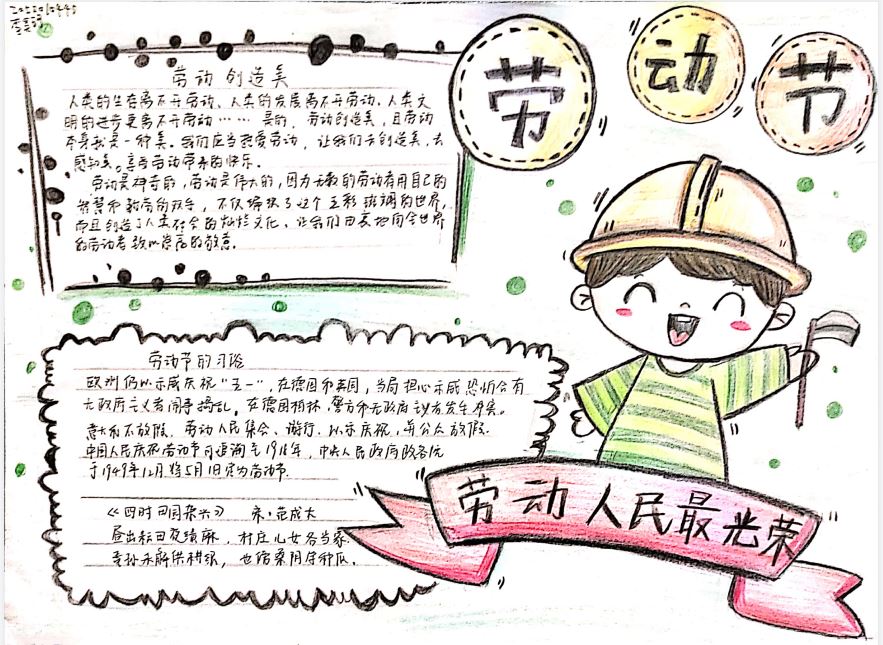 劳动节
劳动创造美
人类的生存离不开劳动、人类的发展离不开劳动、人类文
明的进步更离不开劳动……是的，劳动创造美，且劳动
本身就是一种美。我们应当热爱劳动，让我们去创造美，去
感知美。享受劳动带来的快乐。
劳动是神奇的，劳动是伟大的，因为无数的劳动者用自己的
智慧和勤劳的双手，不仅编织了这个五彩斑斓的世界，
而且创造了人类社会的灿烂文化、让我们由衷地向全世界
的劳动者致以崇高的敬意。
劳动节的习俗
欧洲仍以示威庆祝“五一”，在德国和英国，当局担心示威恐怕会有
无政府主义者闹事捣乱。在德国柏林，警方和无政府主义者发生冲突。
意大利不放假．劳动人民集会、游行，以示庆祝，并公众放假．
中国人民庆祝劳动节可追溯至1918年，中央人民政府政务院
于1949年12月将5月1日定为劳动节．
《四时田园杂兴》 宋·范成大
昼出耘田夜绩麻，村庄儿女各当家
童孙未解供耕织，也傍桑阴学种瓜．
劳动人民最光荣